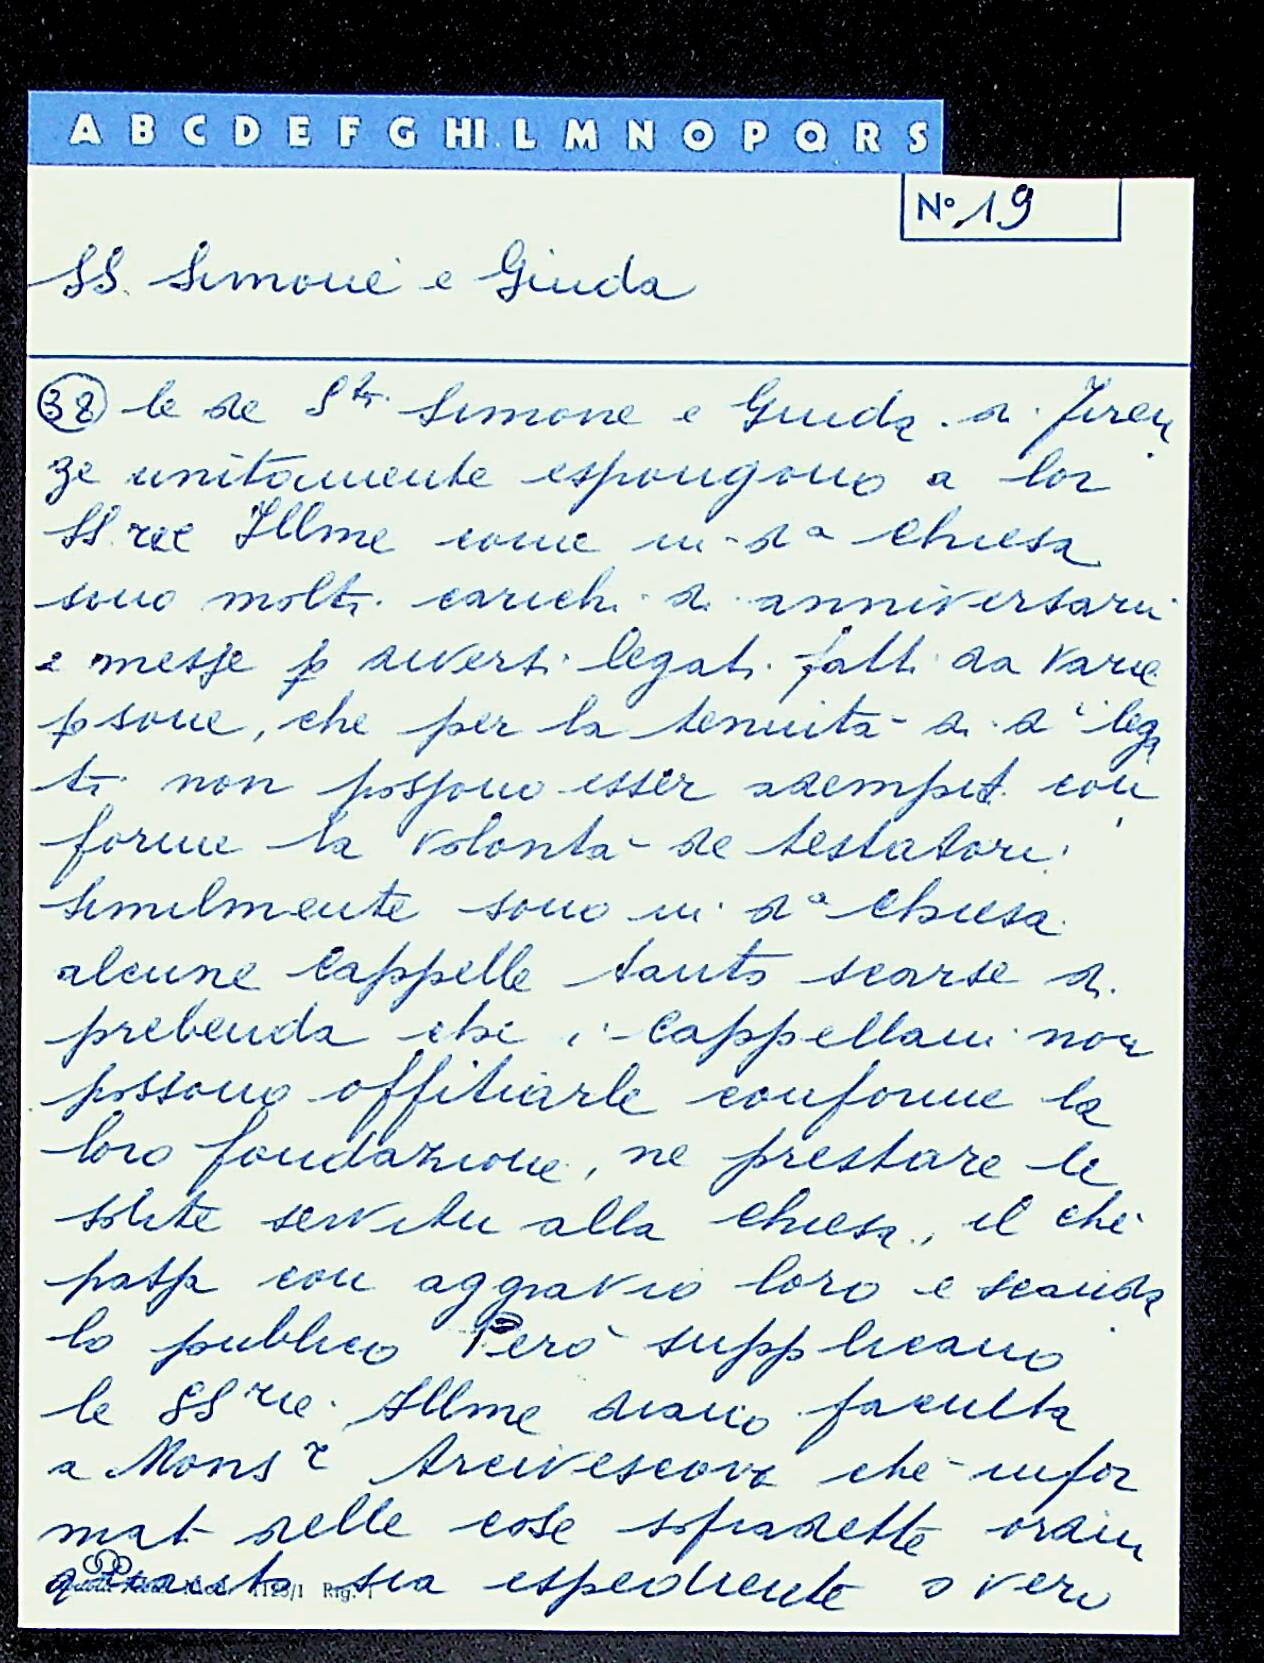 A B C D E F G HI L M N O P Q R S
Nº 19
SS. Simone e Giuda
(38) le de Sti Simone e Giuda di Firen
ze unitamente espongono a lor
SS.rie Illme come in da Chiesa
sono molti carichi di anniversarii
e messe p diversi legati fatti da varie
psone, che per la tenuità di di lega
ti non possono esser adempiti con
forme la volontà de testatori:
similmente sono in da Chiesa
alcune Cappelle tanto scarse di
prebenda che i Cappellani non
possono offitiarle conforme la
loro fondazione, ne prestare le
solite servitu alla Chiesa, il che
passa con aggravio loro e scanda
lo publico Però supplicano
le SSrie Illme diano facultà
a Monsr Arcivescovo che infor
mati delle cose sopradette ordini
quanto sia espediente overo
1125/1 Rig. 1